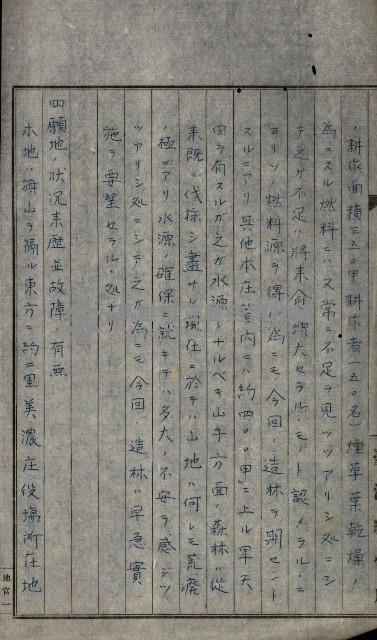 、耕作面積三五〇甲耕作者一五〇名)煙草葉乾燥ノ
為ニスル燃料ニハ又常ニ不足ヲ見ツツアリシ処ニシ
テ之ガ不足ハ将来愈増大セラルヽモノト認メラルヽニ
ヨリソノ燃料源ヲ得ル為ニモ今回ノ造林ヲ期セント
スルニアリ其他本庄管内ニハ約四〇〇甲ニ上ル旱天
田ヲ有スルガ之ガ水源トナルベキ山手方面ノ森林ハ従
来既ニ伐採シ盡サレ現在ニ於テハ山地ハ何レモ荒廃
ノ極ニアリ水源ノ確保ニ就キテハ多大ノ不安ヲ感ジツ
ツアリシ処ニシテ之ガ為ニモ今回ノ造林ハ早急實
施ヲ要望セラルヽ処ナリ
四願地ノ状況来歴並故障ノ有無
本地ハ旗山ヲ隔ル東方ニ約二里美濃庄役場所在地
地官一